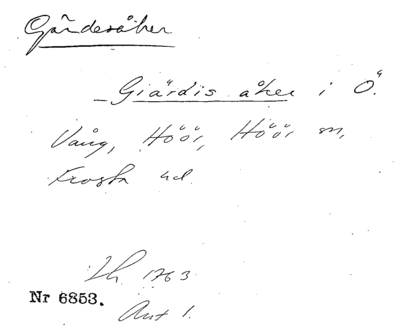 Gärdesåker
Giärdis åker i Ö.
Vång, Höör, Höör sn,
Frosta hd.
Lh. 1763
Nr 6853.
Akt 1.